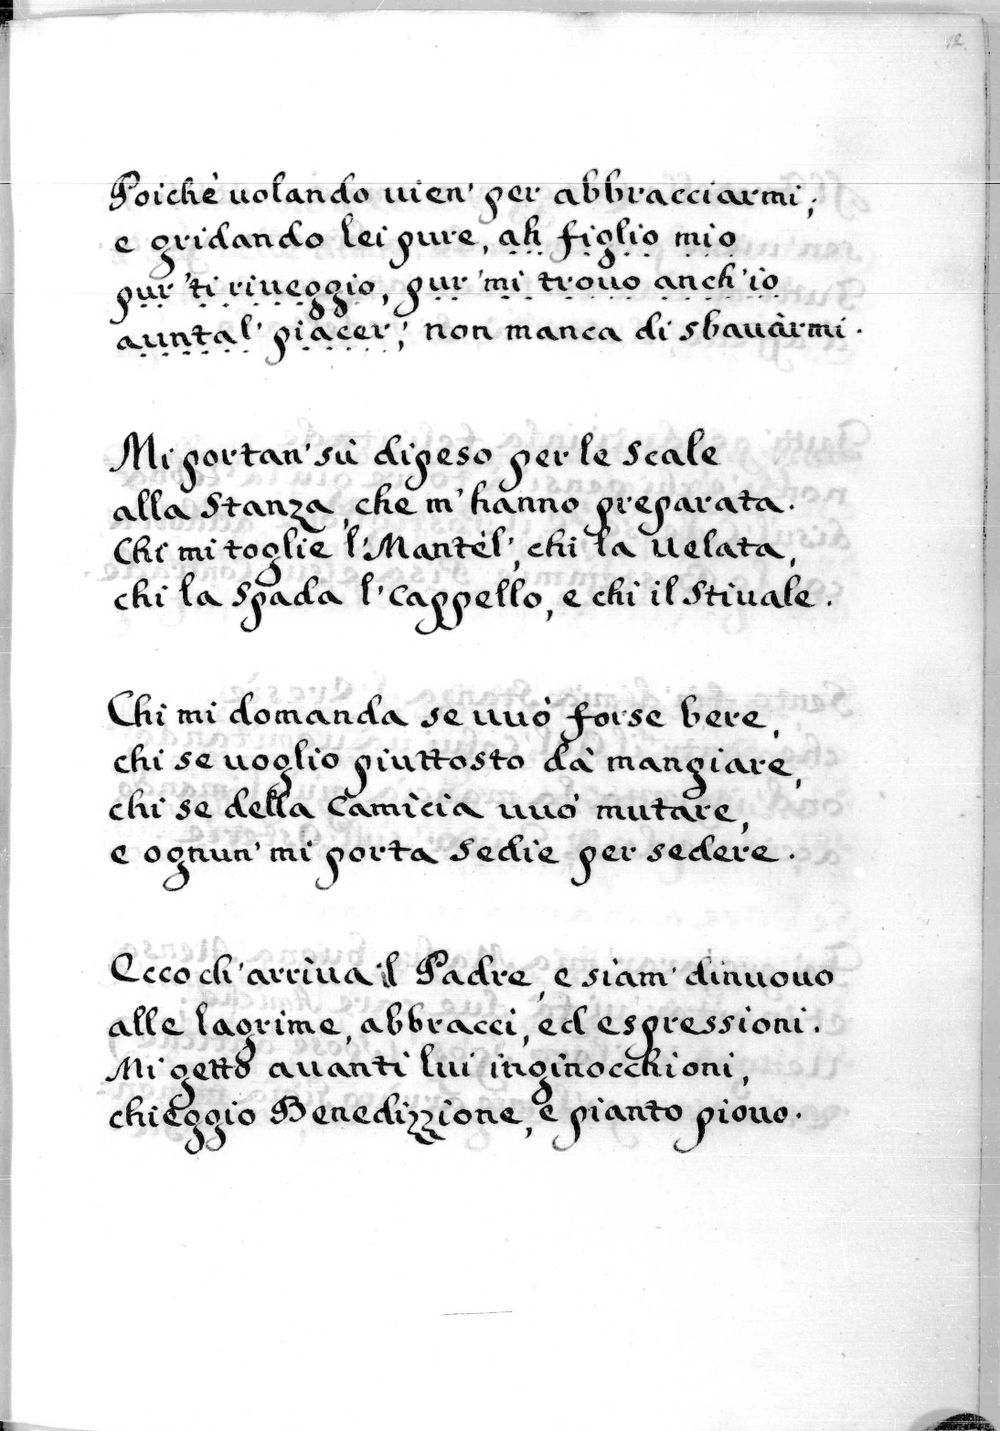 12
Poichè uolando uien' per abbracciarmi;
e gridando lei pure, ah figlio mio
pur' ti riueggio, pur' mi trouo anch' io
auntal' piacer; non manca di sbauàrmi.
Mi portan' sù dipeso per le scale
alla Stanza, che m' hanno preparata.
Chi mi toglie l' Mantèl', chi la uelata,
chi la Spada l' Cappello, e chi il Stiuale.
Chi mi domanda se uuò forse bere,
chi se uoglio piuttosto dà mangiare,
chi se della Camìcia uuò mutare,
e ognun' mi porta Sedie per sedere.
Ecco ch' arrìua il Padre, e siam' dinuouo
alle lagrime, abbracci, ed espressioni.
Mi getto auanti lui inginocchioni,
chieggio Benedizzione, e pianto piouo.